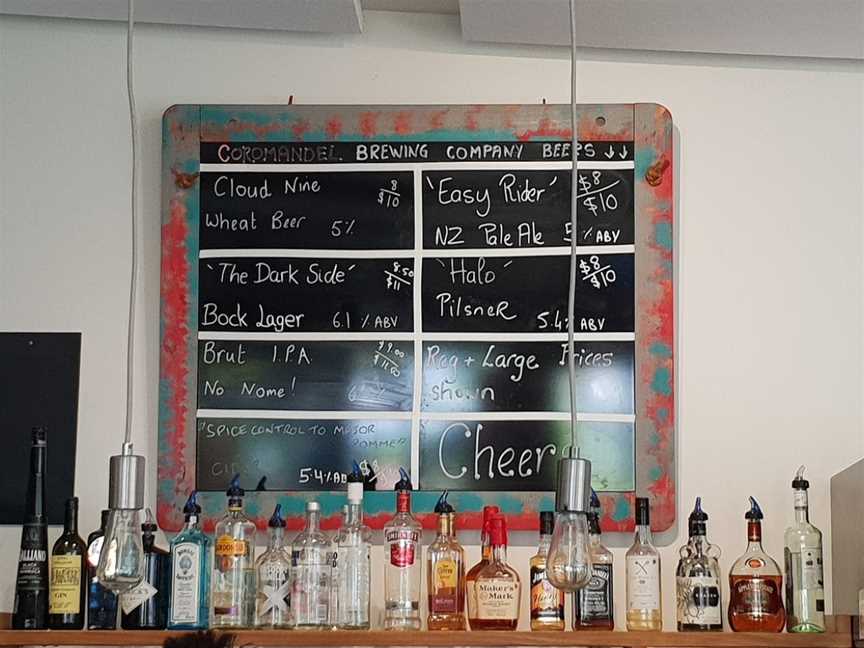 COROMANDEL BREWING COMPANY BEERS ↓↓
Cloud Nine 8
$10
Wheat Beer 5%
'Easy Rider' $8
$10
NZ Pale Ale 5% ABV
'The Dark Side' 8.50
$11
Bock Lager 6.1% ABV
'Halo' $8
$10
Pilsner 5.4% ABV
Brut I.P.A. $9.00
$11.50
No Nome!
Reg + Large Prices
shown
"SPICE CONTROL TO MAJOR
POMMEL
5.4% AB $8
Cheers
GIN
BOMBAY
GORDON'S
SMIRNOFF
Maker's
Mark
JIM BEAM
Honey
JACK
DANIEL'S
KRAKEN
APPLETON